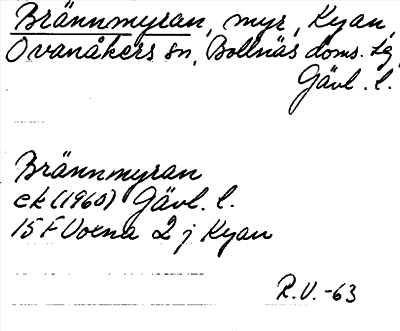 Brännmyran, myr, Kyan,
Ovanåkers sn, Bollnäs doms. lg
Gävl. l.
Brännmyran
ek (1960) Gävl. l.
15 F Voxna 2 j Kyan
R.V.-63